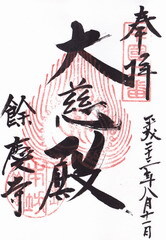 奉拝
平成二十二年八月十一日
大慈殿
餘慶寺